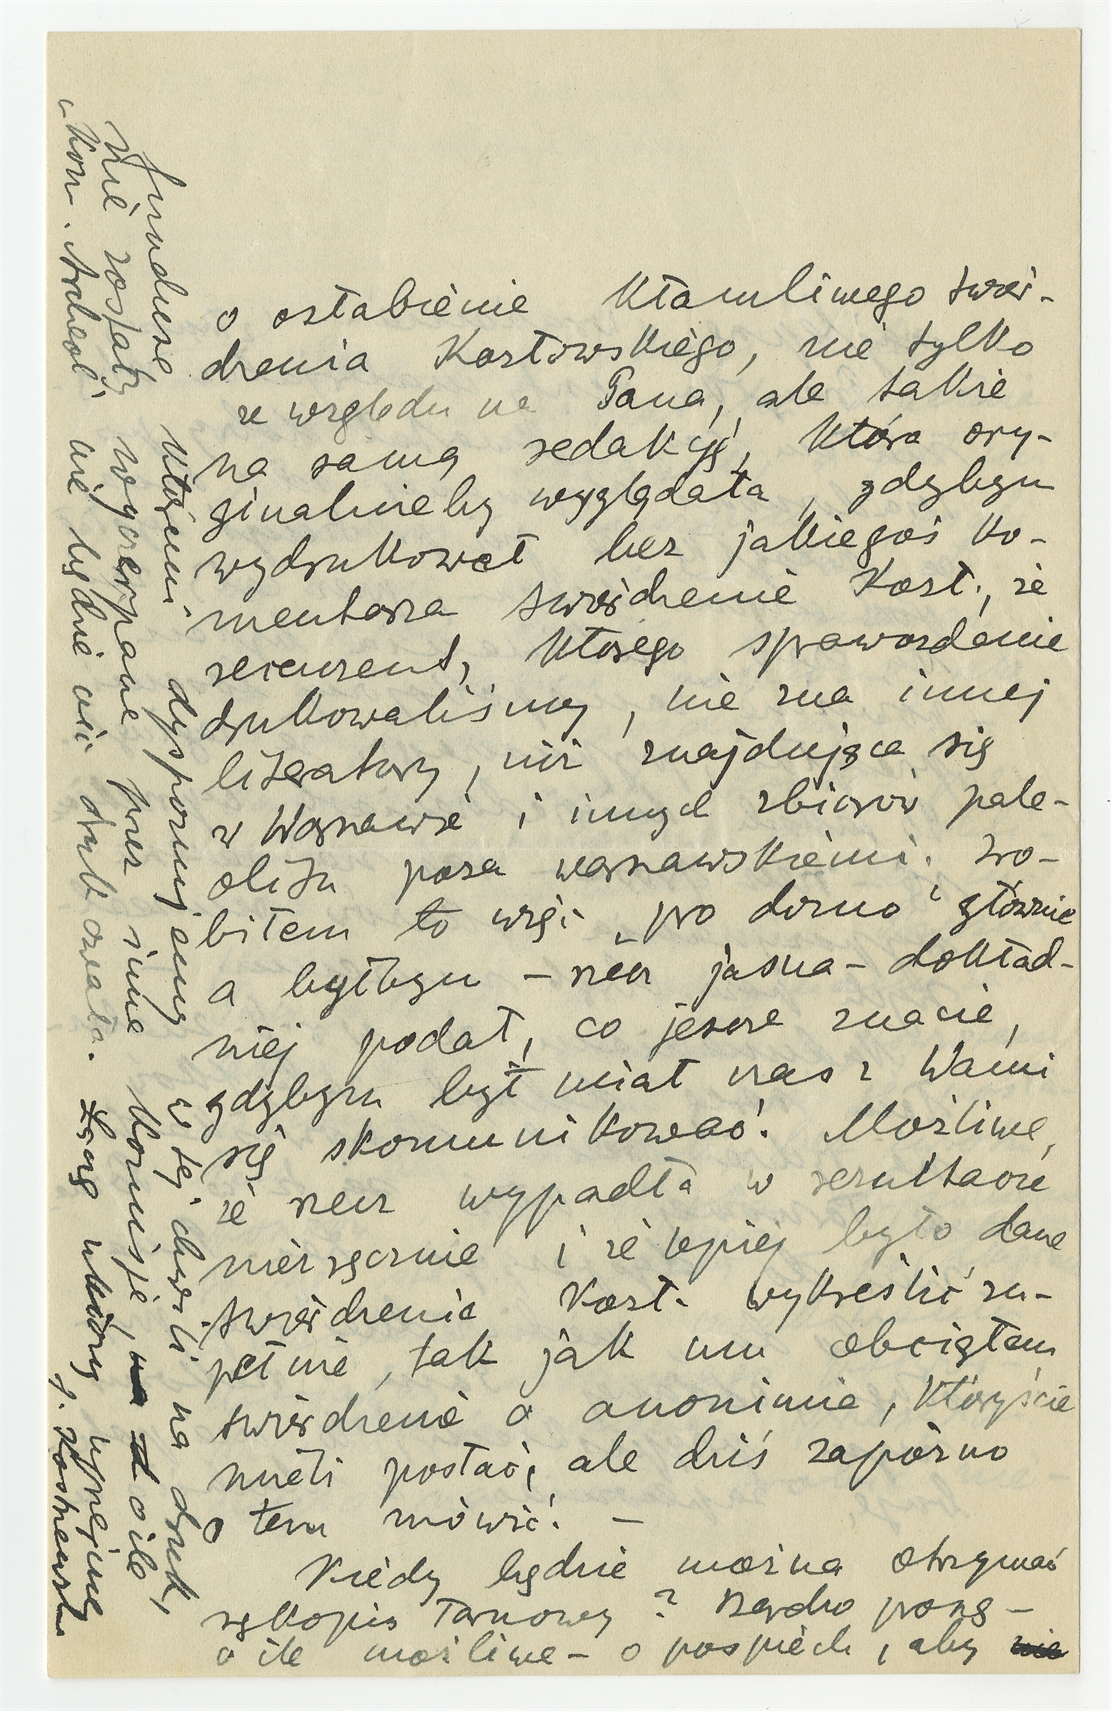 o osłabienie kłamliwego twier-
drenia Kozłowskiego, nie tylko
ze względu na Pana, ale także
na samą redakcję, która ory-
ginalnieby wyglądała, gdybym
wydrukował bez jakiegoś ko-
mentarza twierdzenie Kozł., że
recenzent, którego sprawozdanie
drukowaliśmy, nie zna innej
literatury, niż znajdująca się
w Warszawie i innych zbiorów pale-
olitu poza warszawskiemi. Zro-
biłem to więc „pro domo" głównie
a byłbym – rzecz jasna – dokład-
niej podał, co jeszcze znacie,
gdybym był miał czas z Wami
się skomunikować. Możliwe,
że rzecz wypadła w rezultacie
niezręcznie i że lepiej było dane
twierdzenie Kozł. wykreślić zu-
pełnie, tak jak mu obciąłem
twierdzenie o anonimie, któryście
mieli posłać, ale dziś zapóźno
o tem mówić. –
Kiedy będzie można otrzymać
rękopis Tarnowy? Bardzo proszę –
o ile możliwe – o pospiech, aby
fundusze któremi dysponujemy w tej chwili na druk,
nie zostały wyczerpane przez inne Komisje, o ile
„Kom. Archeol." nie będzie nic drukowała. Łączę ukłony uprzejme
J. Kostrzewski